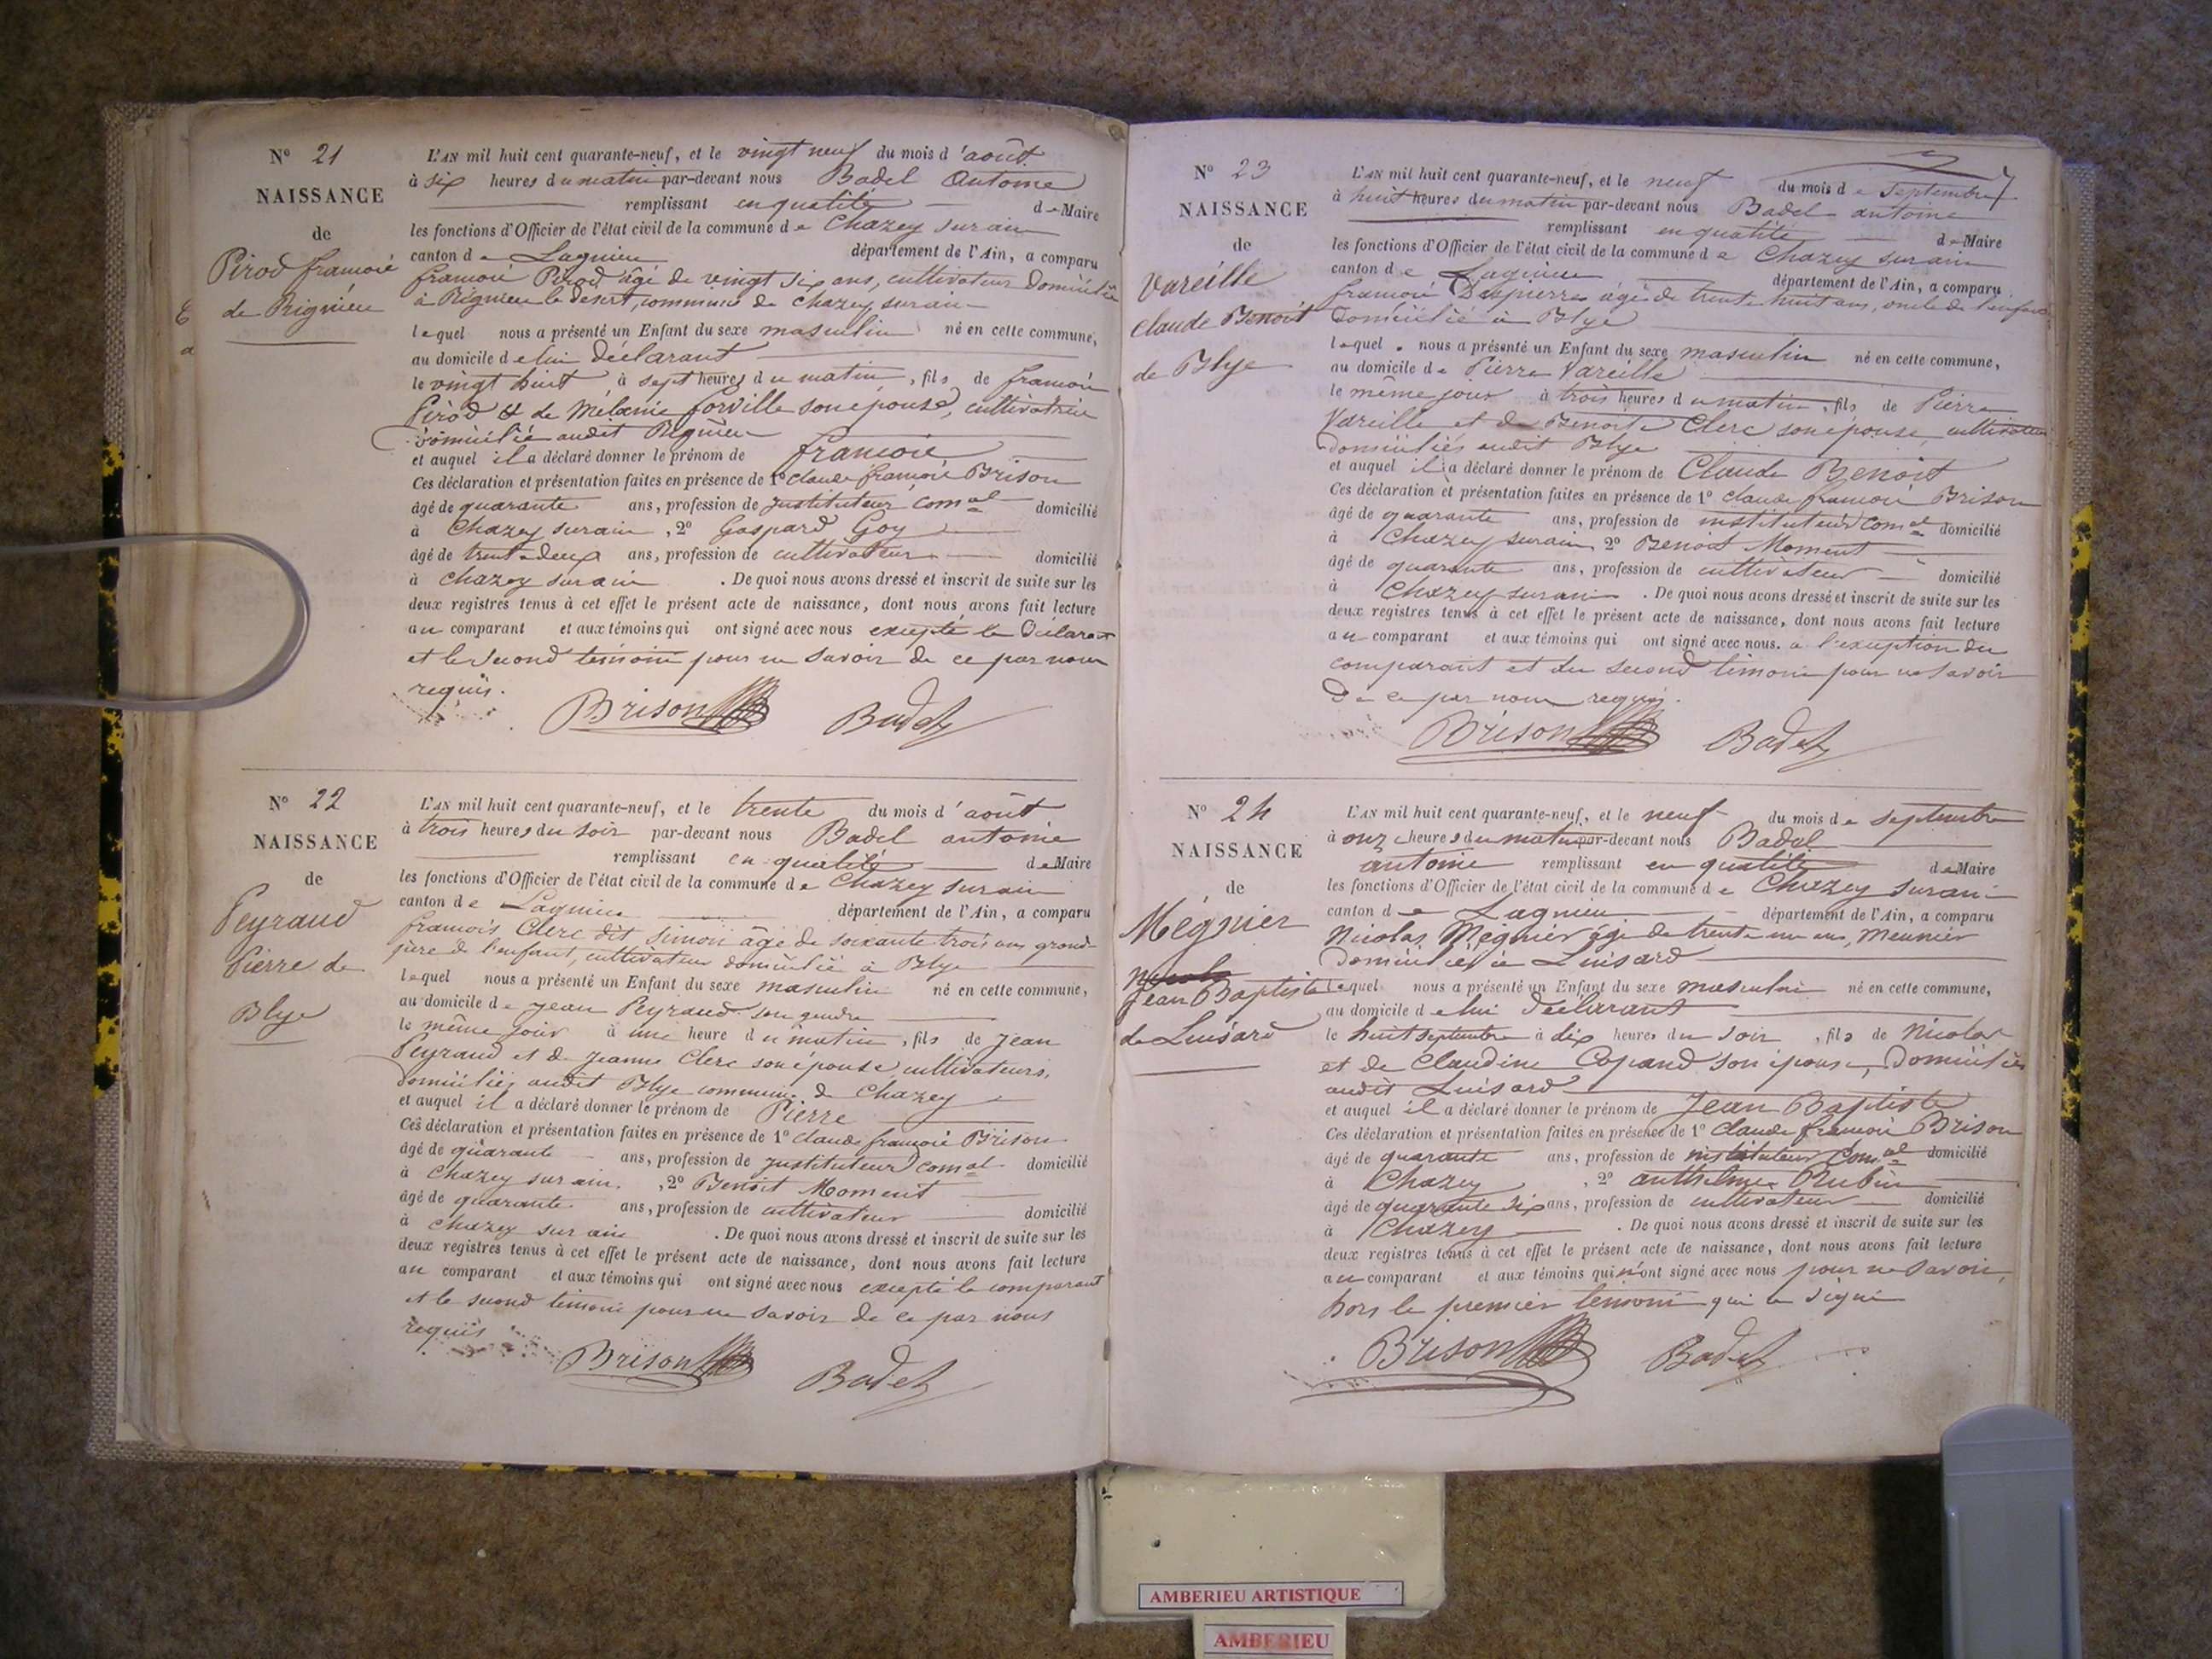 N° 21
NAISSANCE
de
Pirod françois
de Rignieu
L'AN mil huit cent quarante-neuf, et le vingt neuf du mois d'août
à six heures du matin par-devant nous Badel Antoine
remplissant en qualité de Maire
les fonctions d'Officier de l'état civil de la commune de Chazey sur ain
canton de Lagnieu département de l'Ain, a comparu
françois Pirod âgé de vingt six ans, cultivateur Domicilié
à Rignieu le desert, commune de Chazey sur ain
lequel nous a présenté un Enfant du sexe masculin né en cette commune,
au domicile de lui déclarant
le vingt huit à sept heures du matin, fils de françois
Pirod & de Mélanie forville son épouse, cultivatrice
domicilié audit Rignieu
et auquel il a déclaré donner le prénom de françois
Ces déclaration et présentation faites en présence de 1° Claude françois Brison
âgé de quarante ans, profession de Instituteur comal domicilié
à Chazey sur ain, 2° Gaspard Goy
âgé de trente deux ans, profession de cultivateur domicilié
à Chazey sur ain. De quoi nous avons dressé et inscrit de suite sur les
deux registres tenus à cet effet le présent acte de naissance, dont nous avons fait lecture
au comparant et aux témoins qui ont signé avec nous excepté le Déclarant
et le second temoin pour ne savoir de ce par nous
requis.
Brison Badel
N° 22
NAISSANCE
de
Peyraud
Pierre de
Blye
L'AN mil huit cent quarante-neuf, et le trente du mois d'août
à trois heures du soir par-devant nous Badel antoine
remplissant en qualité de Maire
les fonctions d'Officier de l'état civil de la commune de Chazey sur ain
canton de Lagnieu département de l'Ain, a comparu
françois Clerc dit Simon âgé de soixante trois ans grand-
père de l'enfant, cultivateur domicilié à Blye
lequel nous a présenté un Enfant du sexe masculin né en cette commune,
au domicile de Jean Peyraud son gendre
le même jour à une heure du matin, fils de Jean
Peyraud et de Jeanne Clerc son épouse cultivateurs,
domiciliés audit Blye commune de Chazey
et auquel il a déclaré donner le prénom de Pierre
Ces déclaration et présentation faites en présence de 1° Claude françois Brison
âgé de quarante ans, profession de Instituteur comal domicilié
à Chazey sur ain, 2° Benoit Moment
âgé de quarante ans, profession de cultivateur domicilié
à chazey sur ain. De quoi nous avons dressé et inscrit de suite sur les
deux registres tenus à cet effet le présent acte de naissance, dont nous avons fait lecture
au comparant et aux témoins qui ont signé avec nous excepté le comparant
et le second temoin pour ne savoir de ce par nous
requis
Brison Badel
N° 23
NAISSANCE
de
Vareille
Claude Benoit
de Blye
L'AN mil huit cent quarante-neuf, et le neuf du mois de Septembre
à huit heures du matin par-devant nous Badel antoine
remplissant en qualité de Maire
les fonctions d'Officier de l'état civil de la commune de Chazey sur ain
canton de Lagnieu département de l'Ain, a comparu
françois Despierres âgé de trente huit ans, oncle de l'enfant
Domicilié à Blye
lequel nous a présenté un Enfant du sexe masculin né en cette commune,
au domicile de Pierre Vareille
le même jour à trois heures du matin, fils de Pierre
Vareille et de Benoite Clerc son épouse, cultivateurs
domiciliés audit Blye
et auquel il a déclaré donner le prénom de Claude Benoit
Ces déclaration et présentation faites en présence de 1° claude françois Brison
âgé de quarante ans, profession de instituteur comal domicilié
à Chazey sur ain, 2° Benoit Moment
âgé de quarante ans, profession de cultivateur domicilié
à Chazey sur ain. De quoi nous avons dressé et inscrit de suite sur les
deux registres tenus à cet effet le présent acte de naissance, dont nous avons fait lecture
au comparant et aux témoins qui ont signé avec nous. a l'exception du
comparant et du second temoin pour ne savoir
de ce par nous requis.
Brison Badel
N° 24
NAISSANCE
de
Mégnier
Jean Baptiste
de Luisard
L'AN mil huit cent quarante-neuf, et le neuf du mois de septembre
à onz heures du matin par-devant nous Badel
antoine remplissant en qualité de Maire
les fonctions d'Officier de l'état civil de la commune de Chazey sur ain
canton de Lagnieu département de l'Ain, a comparu
Nicolas Mégnier âgé de trente un ans, Meunier
Domicilié à Luisard
lequel nous a présenté un Enfant du sexe masculin né en cette commune,
au domicile de lui Déclarant
le huit septembre à dix heures du soir, fils de Nicolas
et de Claudine Copand son épouse, Domiciliés
audit Luisard
et auquel il a déclaré donner le prénom de Jean Baptiste
Ces déclaration et présentation faites en présence de 1° Claude françois Brison
âgé de quarante ans, profession de instituteur comal domicilié
à Chazey, 2° anthelme Rubin
âgé de quarante six ans, profession de cultivateur domicilié
à Chazey. De quoi nous avons dressé et inscrit de suite sur les
deux registres tenus à cet effet le présent acte de naissance, dont nous avons fait lecture
au comparant et aux témoins qui n'ont signé avec nous pour ne savoir,
hors le premier temoin qui a signé
Brison Badel
AMBERIEU ARTISTIQUE
AMBERIEU